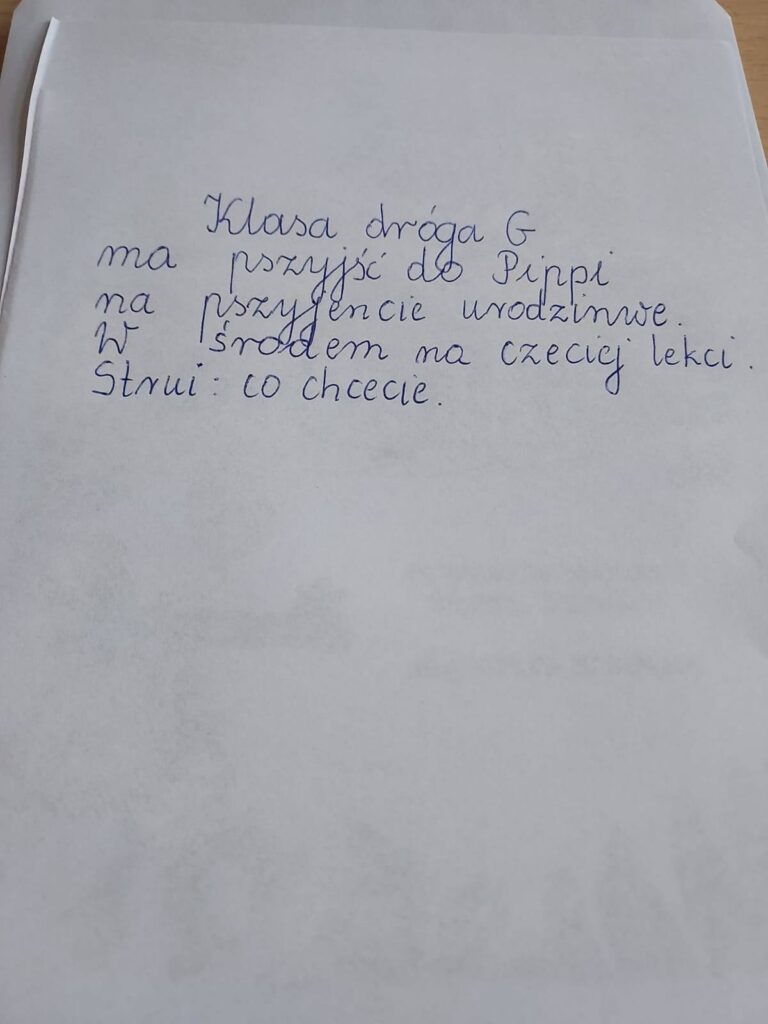 Klasa dróga G
ma pszyjść do Pippi
na pszyjencie urodzinwe.
W środem na czeciej lekci.
Strui: co chcecie.